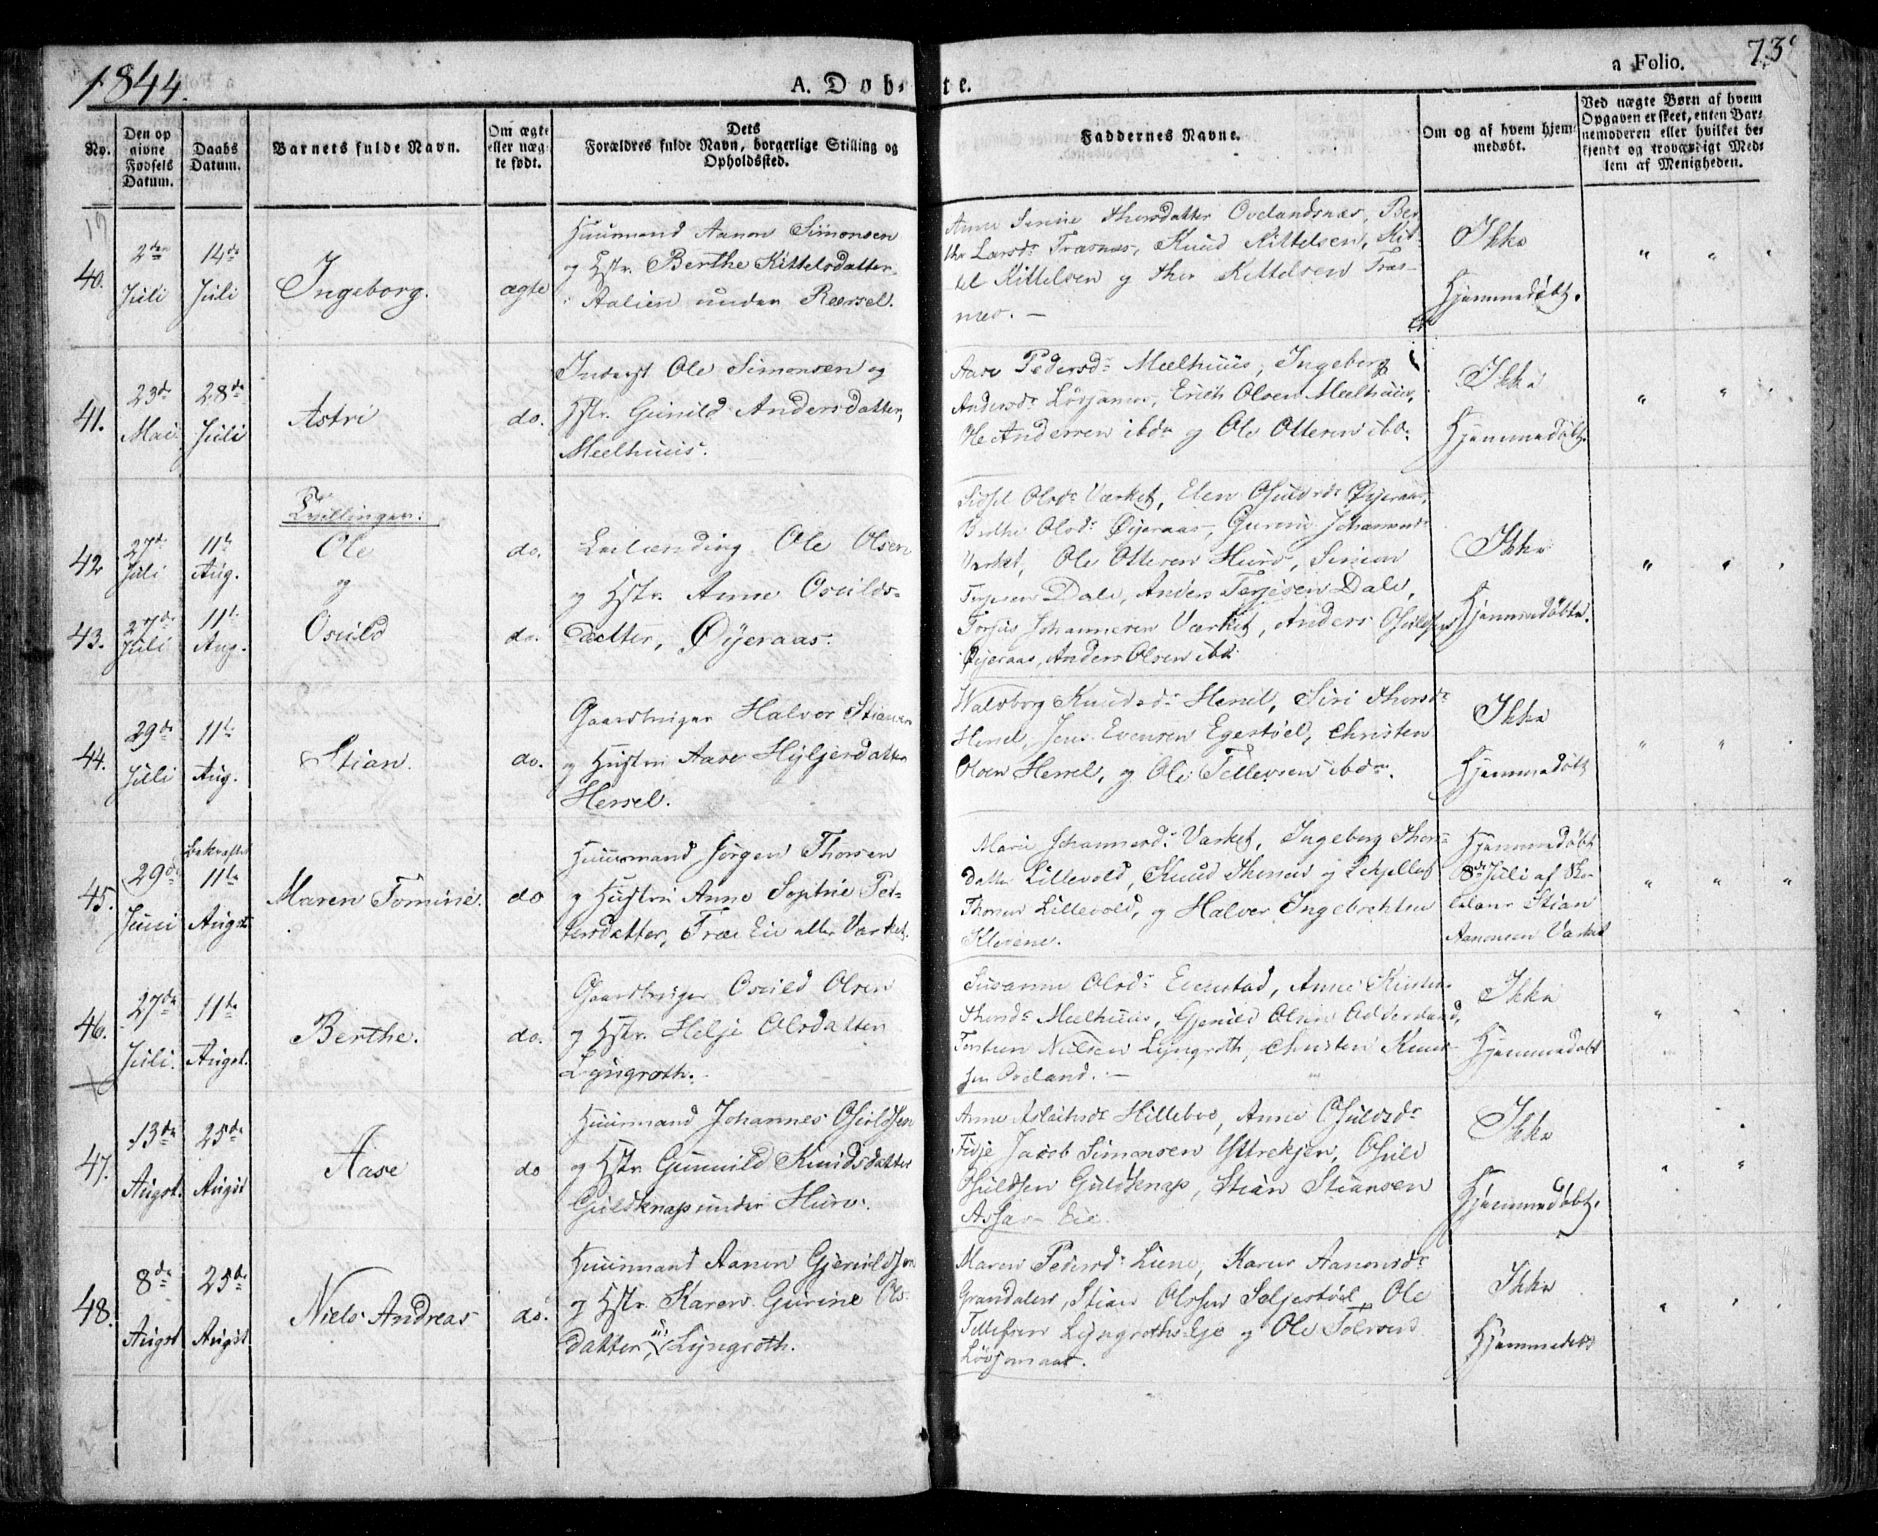 1844.
A. Döbte.
a Folio. 73
No.
Den op
givne
Fødsels
Datum.
Daabs
Datum.
Barnets fulde Navn.
Om ægte
eller uæg-
te født.
Dets
Forældres fulde Navn, borgerlige Stilling og
Opholdssted.
Faddernes Navne.
Om og af hvem hjem-
medøbt.
Ved uægte Børn af hvem
Opgaven er skeet, enten Bar-
nemoderen eller hvilket be-
kjendt og troværdigt Med-
lem af Menigheden.
40.
2den
Juli
14de
Juli
Ingeborg.
ægte
Huusmand Aanon Simonsen
og Hstr. Berthe Kittelsdatter
Aalien under Rørsel.
Anne Sirine Thorsdatter Ovelandsnæs, Ber-
the Larsdr Træsnæs, Knud Kittelsen, Kit-
tel Kittelsen og Thor Kittelsen Træs-
næs. —
Ikke
Hjemmedøbt.
" " "
41.
23de
Mai
28de
Juli
Astri
do.
Inderst Ole Simonsen og
Hstr. Gunild Andersdatter,
Mælhuus.
Aase Pedersdr Mælhuus, Ingeborg
Andersdr Lövjomæs, Erich Olsen Mælhuus,
Andersen ibdm og Ole Ottersen ibd.
Ikke
Hjemmedøbt.
" "
Tvillinger:
42
27de
Juli
11te
Aug.
Ole
og
do.
43.
27de
Juli
11te
Aug.
Osuld
do.
Leilænding Ole Olsen
og Hstr. Anne Osulds-
datter, Øyeraas.
Sidsel Olsdr Værket, Elen Osuldsdr Øyeraas,
Berthe Olsdr Øijeraas, Gurine Johannesdr
Værket, Ole Ottersen Huus, Simon
Terjesen Dale, Anders Terjesen Dale,
Torjus Johannesen Værket, Anders Osuldsen
Øijeraas, Anders Olsen ibd.
Ikke
Hjemmedøbte.
" " "
44.
29de
Juli
11te
Aug.
Stian.
do.
Gaardbruger Halvor Stiansen
og Hustru Aase Hyljersdatter
Hersel.
Walborg Knudsdr Hersel, Siri Thorsdr
Hersel, Jens Evensen Egestöel, Christen
Olsen Hersel, og Ole Tellevsen ibdm.
Ikke
Hjemmedøbt
" "
45.
29de
Juni
bekræftet
11te
Augst
Maren Tomine.
do
Huusmand Jörgen Thorsen
og Hustru Anne Sophie Pet-
tersdatter, Træ Eie eller Værket.
Marie Johannesdr Værket, Ingeborg Thors-
datter Lillevold, Knud Thorsen og Tellef
Thorsen Lillevold, og Halvor Ingebrethsen
Klevene.
Hjemmedøbt
8de Juli af Sko-
lelærer Stian
Aanonsen Værket
" " "
46.
27de
Juli.
11te
Augst.
Berthe.
do.
Gaardbruger Osuld Olsen
og Hstr. Helje Olsdatter
Lyngroth.
Susanne Olsdr Evenstad, Anne Kirstin
Thorsdr Mælhuus, Gjeruld Olsen Odderdand,
Torsten Nielsen Lyngroth, Christen Knud-
sen Oveland. —
Ikke
Hjemmedøbt
" "
47.
13de
Augst.
25de
Augst
Aase
do
Huusmand Johannes Osuldsen
og Hstr. Gunuild Knudsdatter
Guldsknap under Hurv.
Anne Aslaksdr Hilleboe, Anne Osuldsdr
Tveje Jacob Simonsen Yttrekjen, Osuld
Osuldsen Guldsknap, Stian Stiansen
Eie.
Ikke
Hjemmedøbt.
" "
48.
8de
Augst
25de
Augst
Niels Andreas
do.
Huusmand Aanon Gjeruldsen
og Hstr. Karen Gurine Ols-
datter, u: Lyngroth.
Maren Pedersdr Liene, Karen Aanonsdr
Grændalen, Stian Olssen Seljestöel, Ole
Tellefsen Lyngroths Eje og Ole Tolvsen
Lövjomaas.
Ikke
Hjemmedøbt
" "